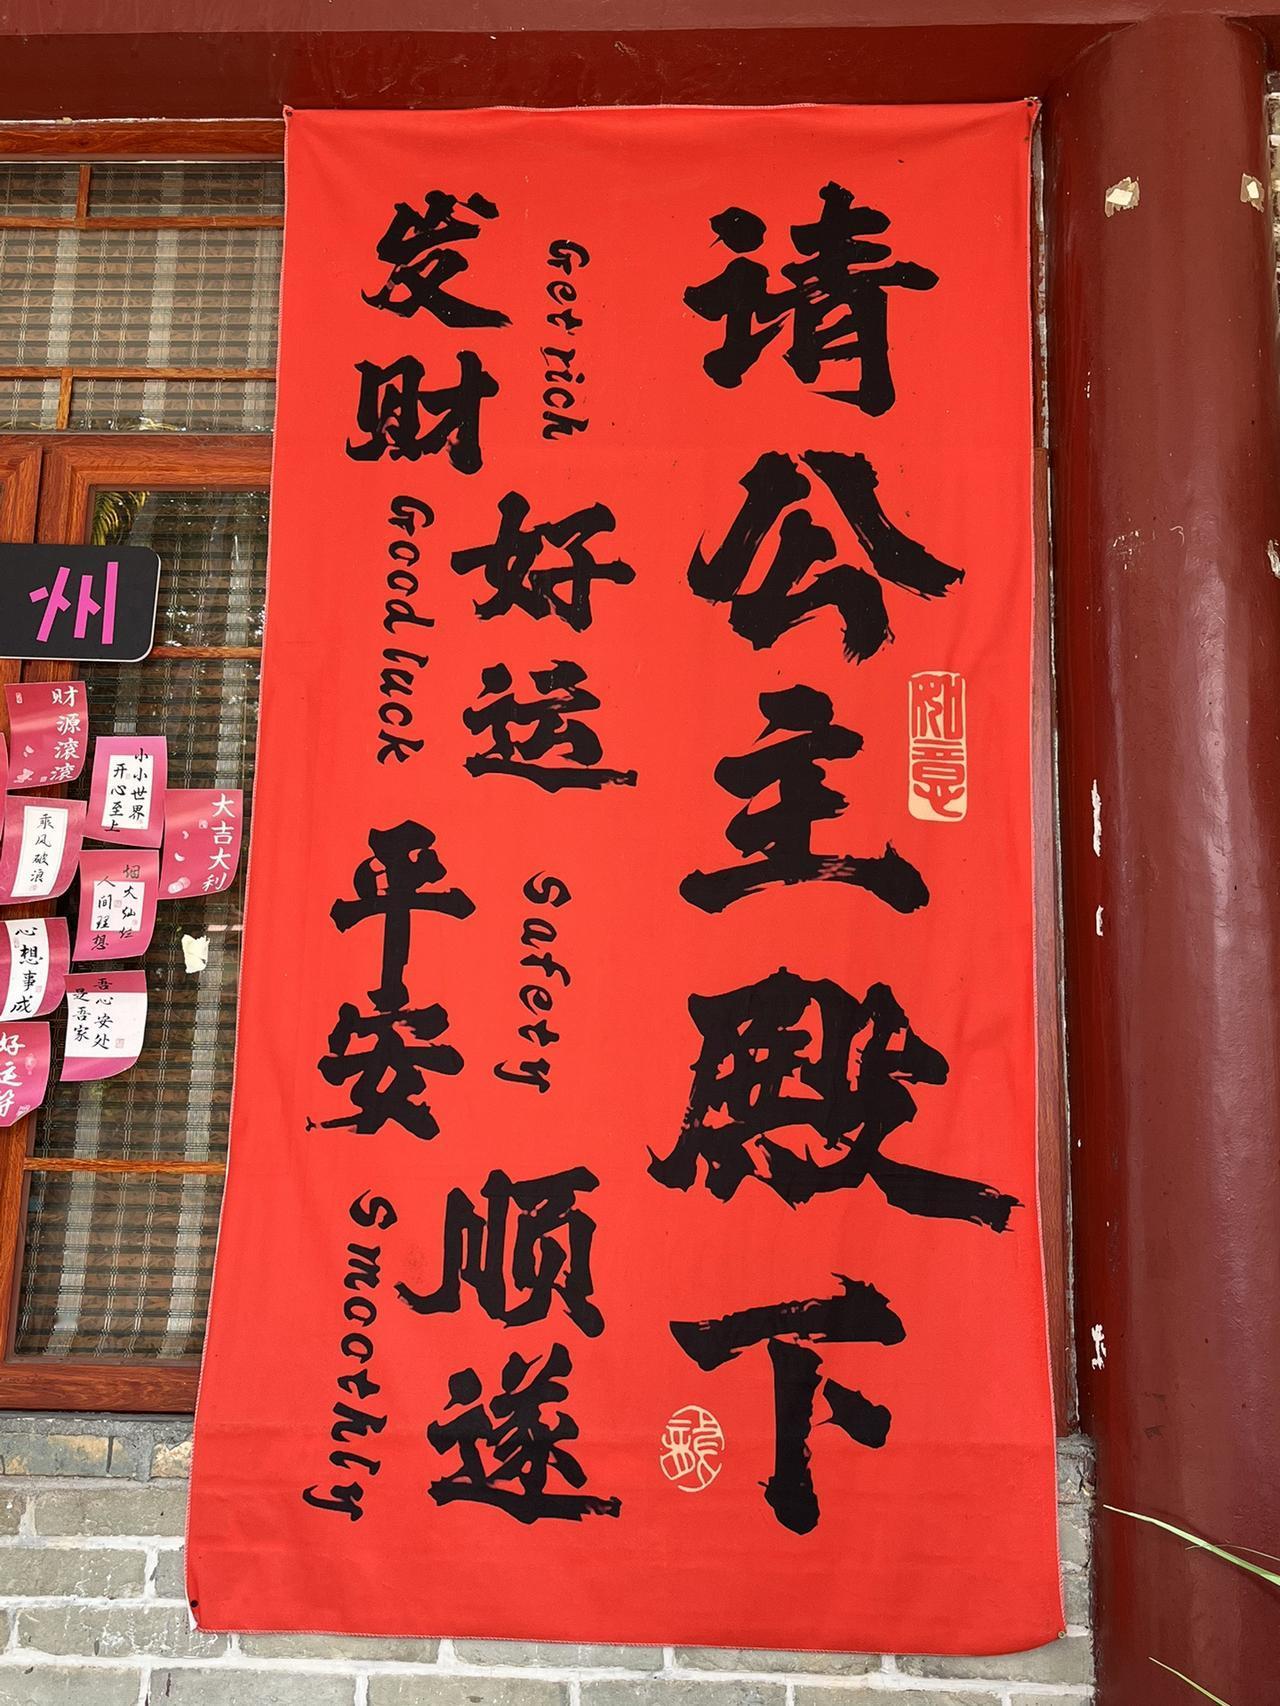 请公主殿下
如意
龍
Get rich
发财
好运
Good luck
Safety
平安
顺遂
Smoothly
州
财源滚滚
小小世界
开心至上
大吉大利
乘风破浪
烟火灿烂
人间理想
心想事成
吾心安处
是吾家
好运符